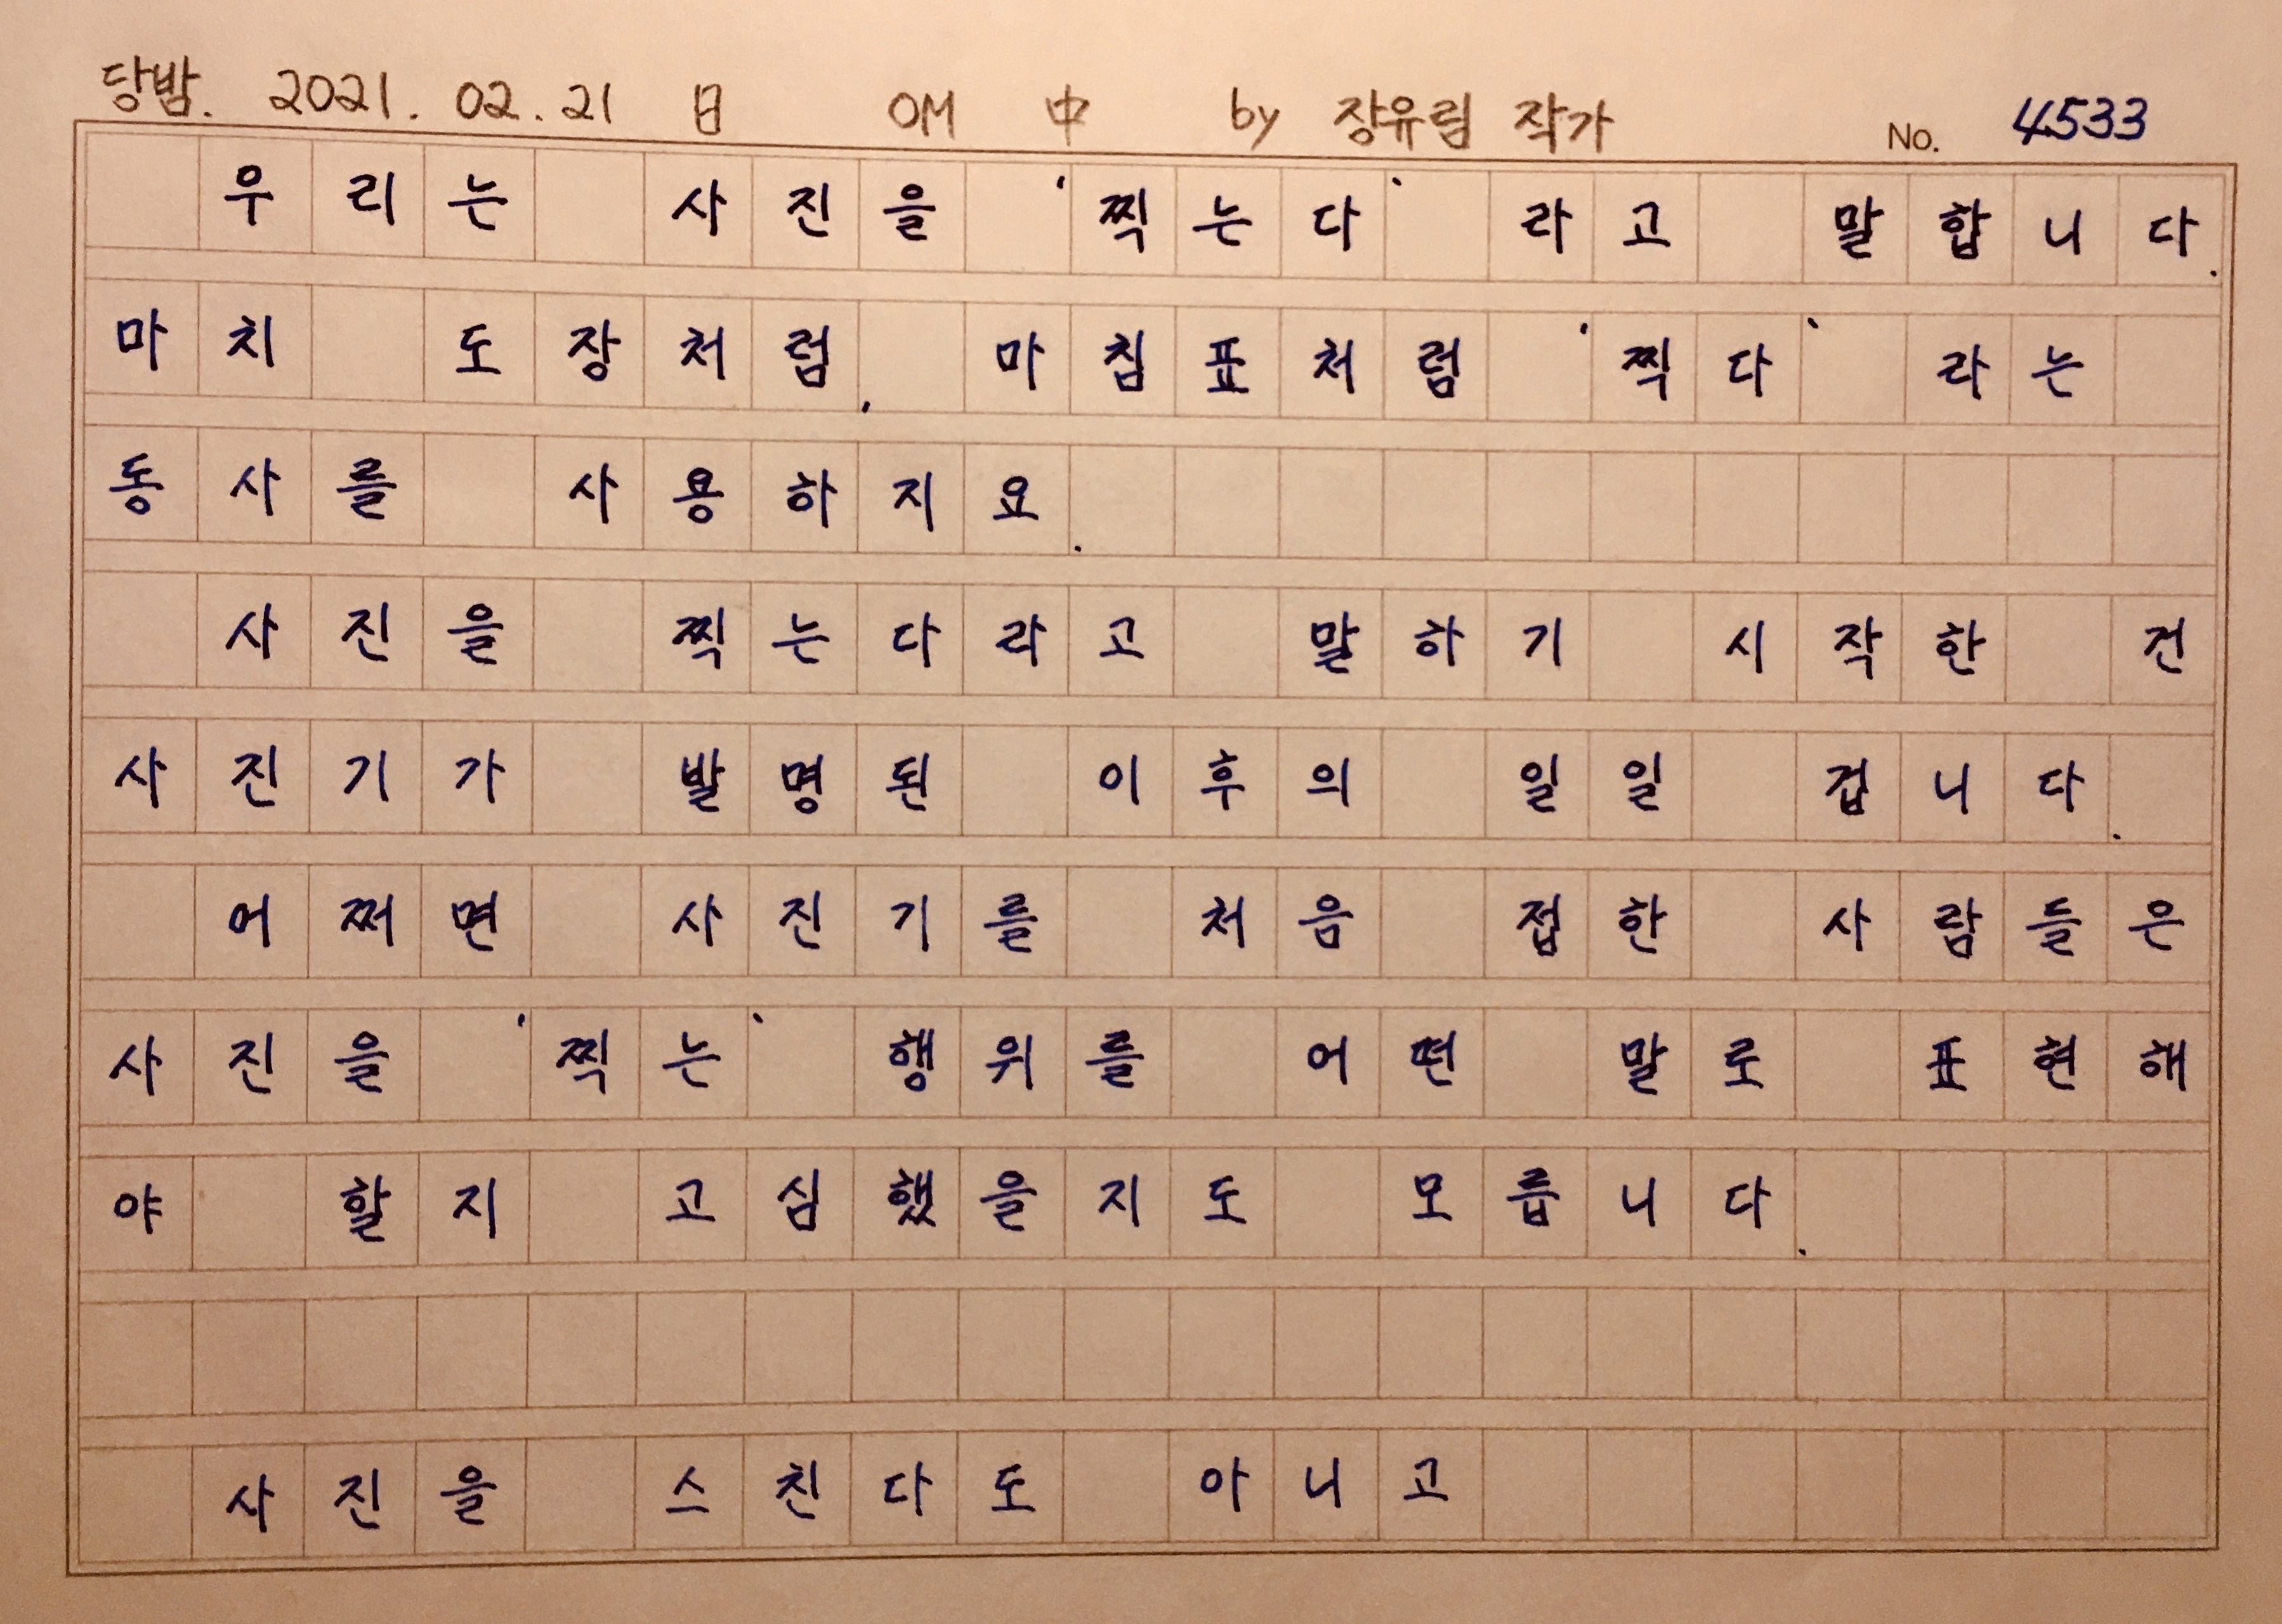 당밤. 2021. 02. 21 日 OM 中 by 장유림 작가 No. 4533
우리는 사진을 '찍는다' 라고 말합니다.
마치 도장처럼, 마침표처럼 '찍다' 라는
동사를 사용하지요.
사진을 찍는다라고 말하기 시작한 건
사진기가 발명된 이후의 일일 겁니다.
어쩌면 사진기를 처음 접한 사람들은
사진을 '찍는' 행위를 어떤 말로 표현해
야 할지 고심했을지도 모릅니다.
사진을 스친다도 아니고